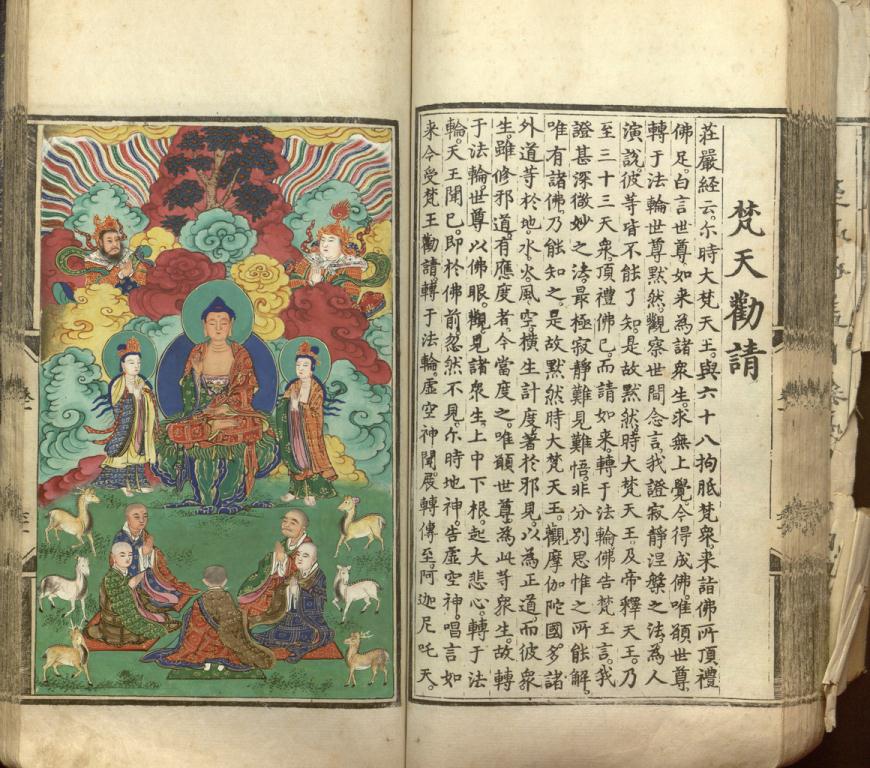 梵天勸請
莊嚴経云。尒時大梵天王。與六十八拘胝梵衆。来詣佛所頂禮
佛足。白言世尊如来為諸衆生。求無上覺今得成佛。唯願世尊。
轉于法輪世尊黙然。觀察世間念言。我證寂静涅槃之法。為人
演說。彼等皆不能了知。是故黙然。時大梵天王。及帝釋天王。乃
至三十三天衆。頂禮佛已。而請如来。轉于法輪佛告梵王言。我
證甚深微妙之法。最極寂静難見難悟。非分别思惟之所能解。
唯有諸佛。乃能知之。是故黙然時大梵天王。觀摩伽陀國。多諸
外道等於地。水。火。風。空。横生計度。著於邪見。以為正道。而彼衆
生。雖修邪道。有應度者。今當度之。唯願世尊。為此等衆生。故轉
于法輪。世尊以佛眼。觀見諸衆生。上中下根。起大悲心。轉于法
輪。天王聞已。即於佛前忽然不見。尒時地神。告虛空神。唱言如
来今受梵王勸請轉于法輪。虛空神聞。展轉傳至。阿迦尼吒天。